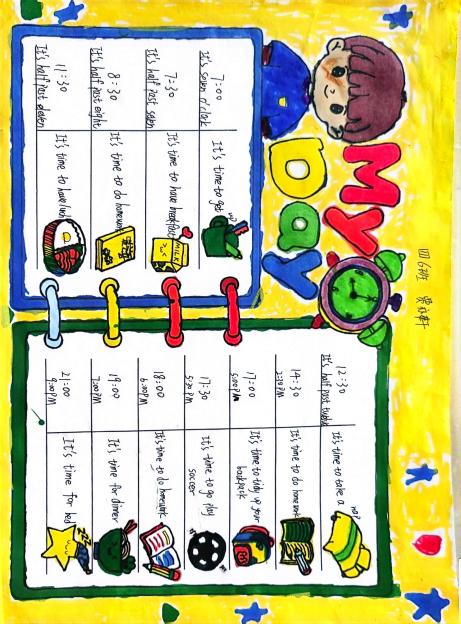 四6班
My
Day
7:00
It's seven o'clock
It's time to get
up
7:30
It's half past seven
It's time to have breakfast
MILK
8:30
It's half past eight
It's time to do homework
11:30
It's half past eleven
It's time to have
12:30
It's half past
It's time to take a
nap
14:30
2:30PM
It's time to do homework
17:00
5:00PM
It's time to tidy up your
backpack
17:30
5:30PM
It's time to go play
soccer
18:00
6:00PM
It's time to do homework
19:00
7:00PM
It's time for dinner
21:00
9:00PM
It's time for bed